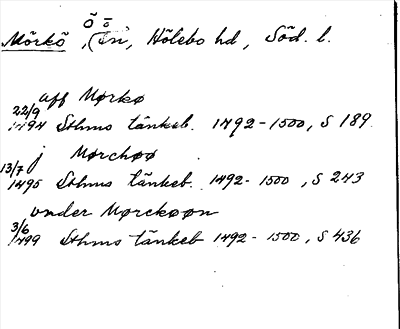 Mörkö, Ö (Ön), Hölebo hd, Söd. l.
aff Mørkø
22/9 1494 Sthms tänkeb. 1492-1500, S 189.
j Mørchøø
13/7 1495 Sthms tänkeb. 1492-1500, S 243
vnder Mørckøøn
3/6 1499 Sthms tänkeb 1492-1500, S 436